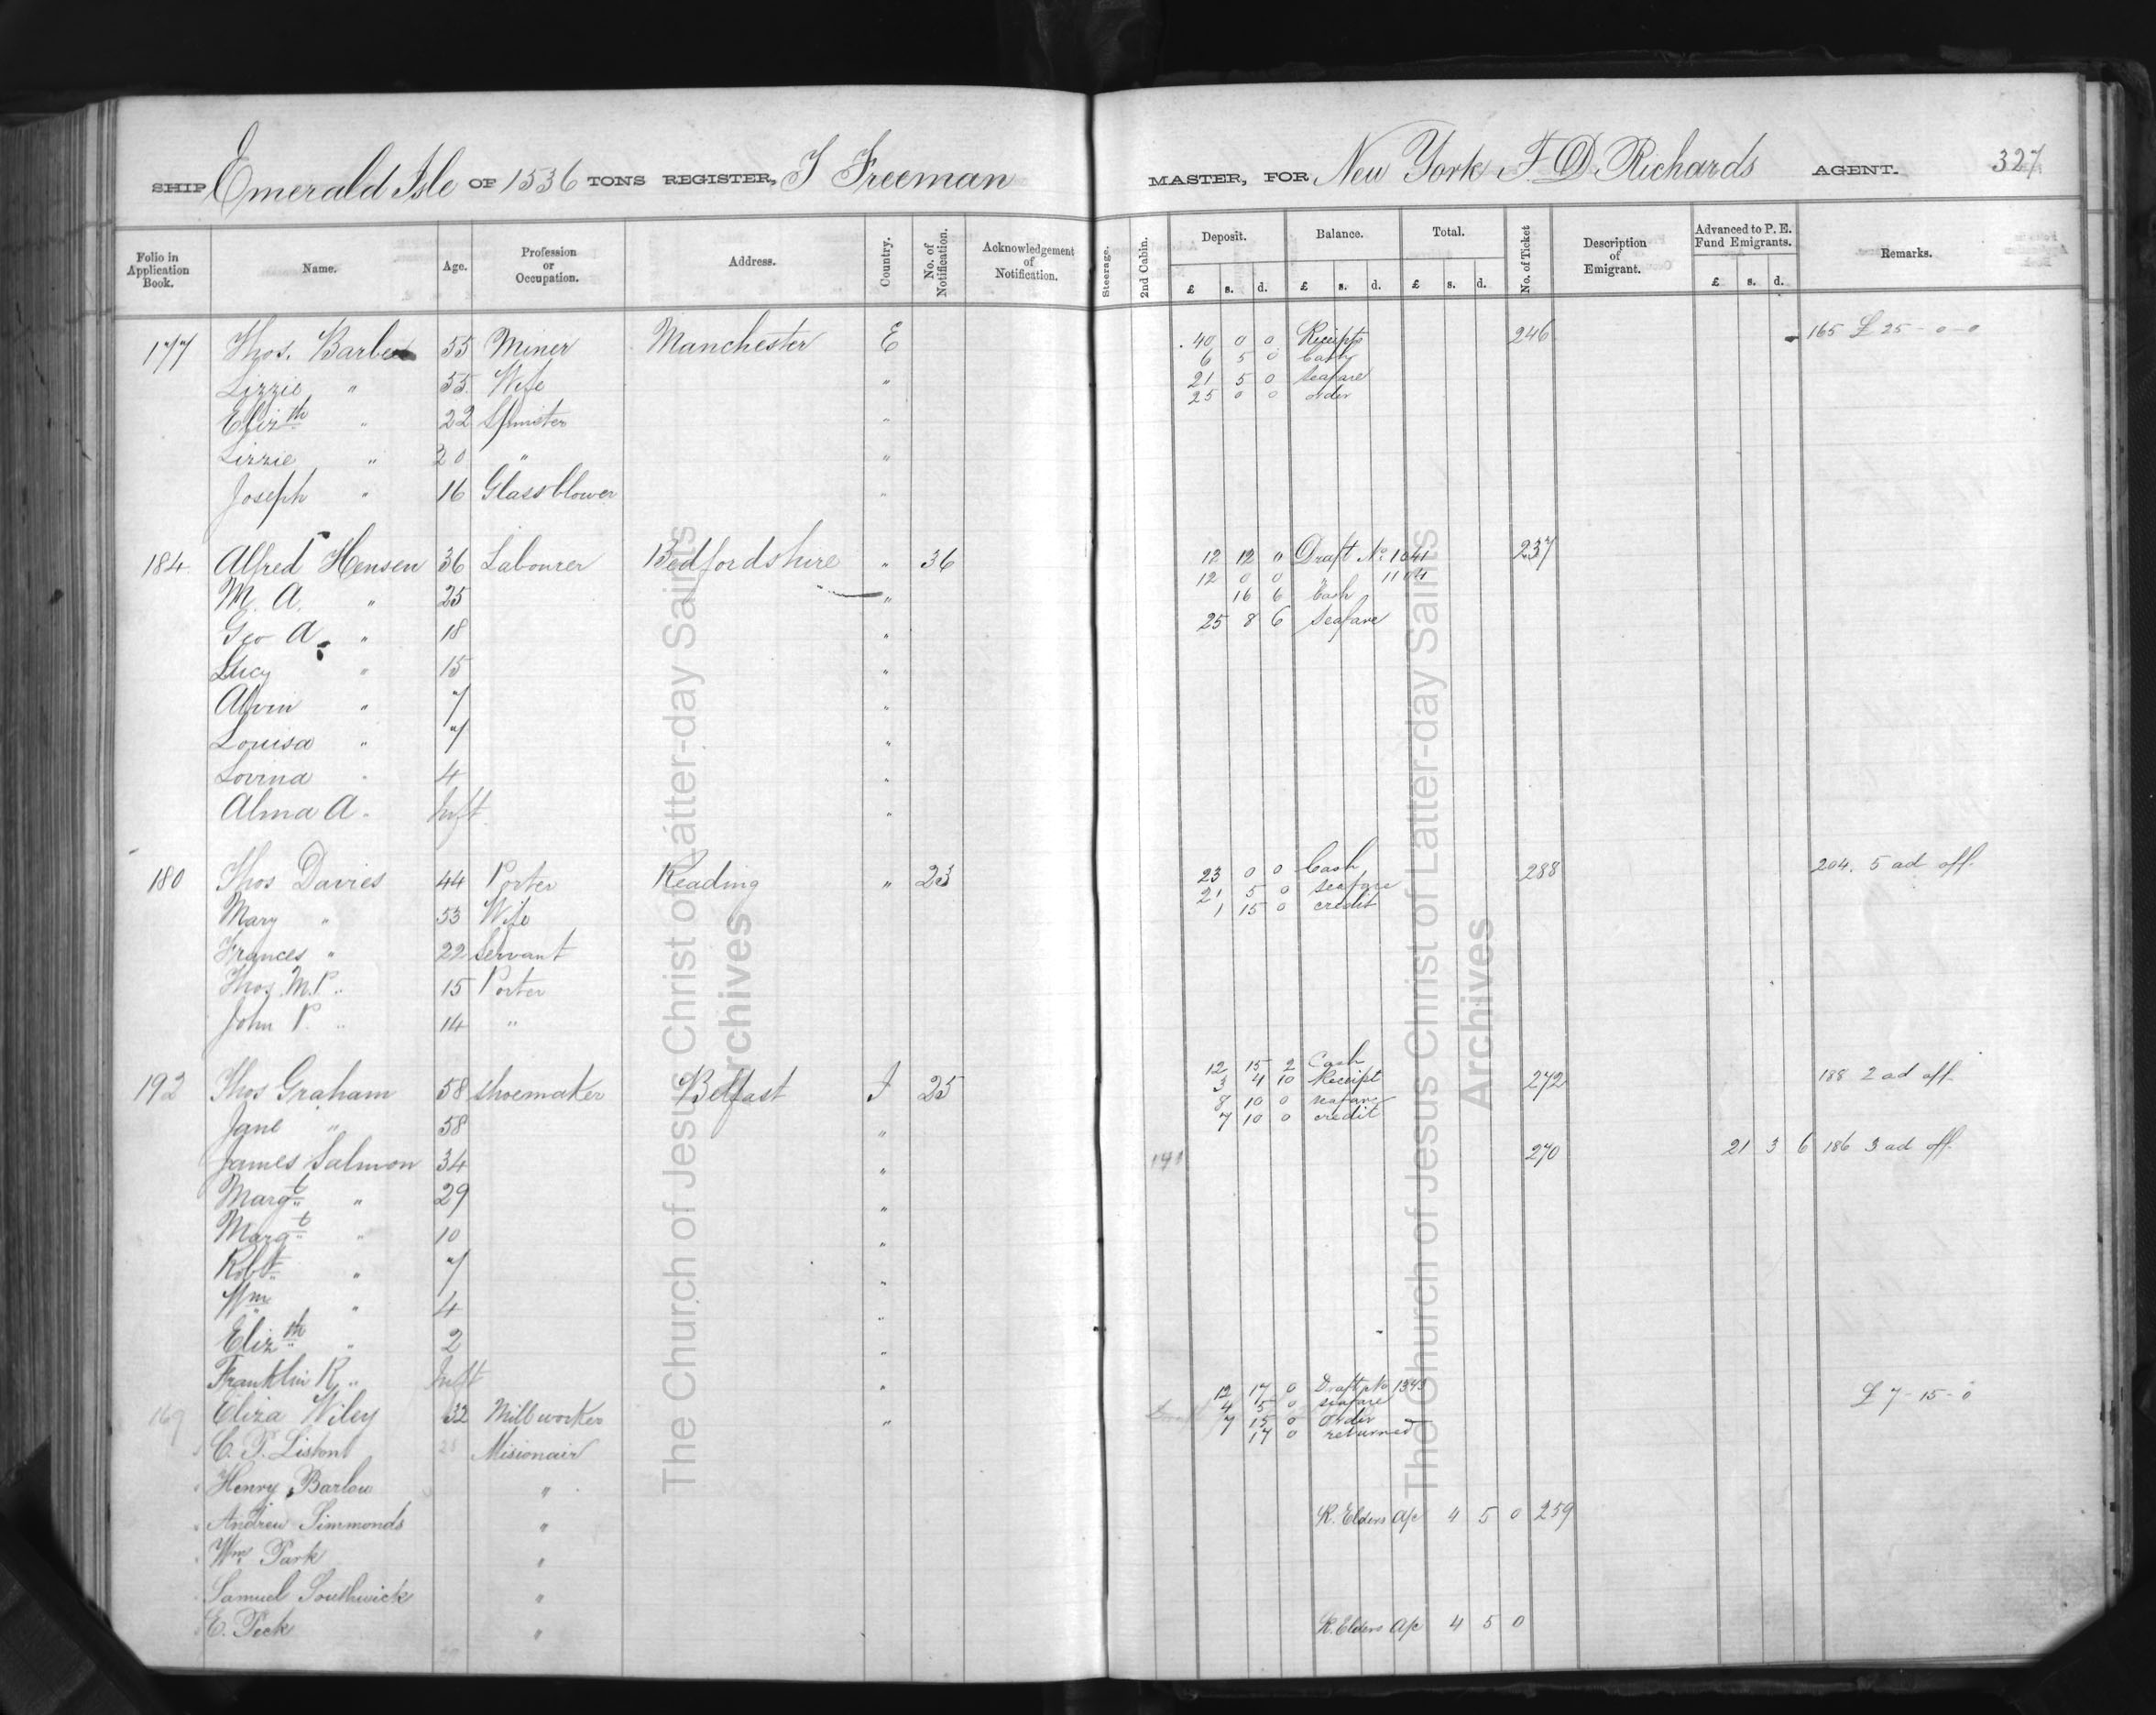 SHIP Emerald Isle OF 1536 TONS REGISTER, J Freeman MASTER, FOR New York F. D. Richards AGENT. 327
Folio in Application Book. Name. Age. Profession or Occupation. Address. Country. No. of Notification. Acknowledgement of Notification. Steerage. 2nd Cabin. Deposit. Balance. Total. No. of Ticket Description of Emigrant. Advanced to P. E. Fund Emigrants. Remarks.
£ s. d. £ s. d. £ s. d. £ s. d.
177 Thos. Barber 55 Miner Manchester E 40 0 0 Receipts 246 165 £ 25 - 0 - 0
6 5 0 Cash
Lizzie " 55. Wife " 21 5 0 seafare
25 0 0 order
Elizth " 22 Spinster "
Lizzie " 20 " "
Joseph " 16 Glassblower "
184 Alfred Hensen 36 Labourer Bedfordshire " 36 12 12 " Draft No. 1041 237
12 0 0 " 1104
M. A. " 25 " 16 6 Cash
Geo A. " 18 " 25 8 6 seafare
Lucy " 15 "
Alvin " 7 "
Louisa " 7 "
Lovina " 4 "
Alma A. Inft "
180 Thos Davies 44 Porter Reading " 23 23 0 0 Cash 288 204. 5 ad off.
21 5 0 seafare
Mary " 53 Wife 1 15 0 credit
Frances " 22 Servant
Thos. M.P. " 15 Porter
John P. " 14 "
192 Thos Graham 58 Shoemaker Belfast I 25 12 15 2 Cash 272 188 2 ad off.
3 4 10 Receipt
8 10 0 seafare
Jane " 58 " 7 10 0 credit
James Salmon 34 " 191 270 21 3 6 186 3 ad off.
Margt " 29 "
Margt " 10 "
Robt " 7 "
Wm " 4 "
Elizth " 2 "
Franklin R. " Inft " 12 17 0 Draft No 1343
169 Eliza Wiley 32 Millworker " 4 5 0 seafare £ 7 - 15 - 0
7 15 0 order
17 0 returned
C. P. Liston 28 Misionair
Henry Barlow "
Andrew Simmonds " R. Elders a/c 4 5 0 259
Wm. Park "
Samuel Southwick "
E. Peck " R. Elders a/c 4 5 0
The Church of Jesus Christ of Latter-day Saints
Archives
The Church of Jesus Christ of Latter-day Saints
Archives